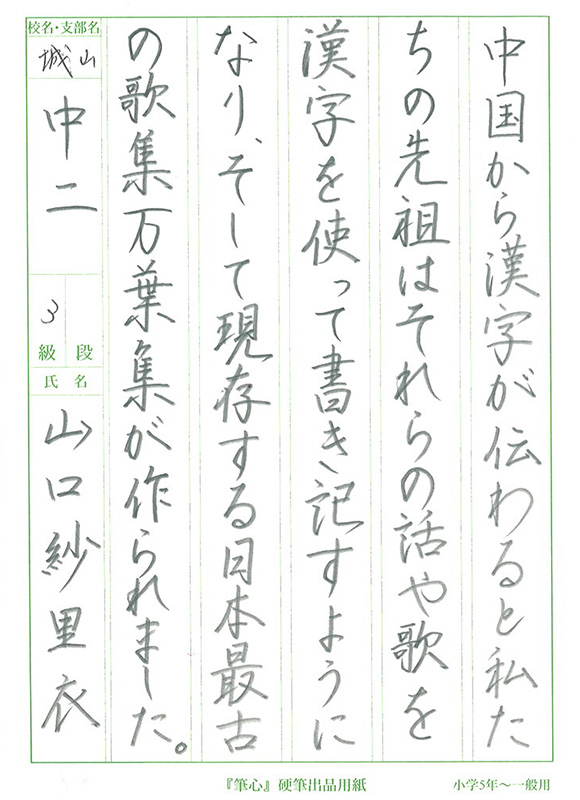 中国から漢字が伝わると私た
ちの先祖はそれらの話や歌を
漢字を使って書き記すように
なり、そして現存する日本最古
の歌集万葉集が作られました。
校名・支部名
城山
中二
3
級 段
氏 名
山口紗里衣
『筆心』硬筆出品用紙
小学5年〜一般用